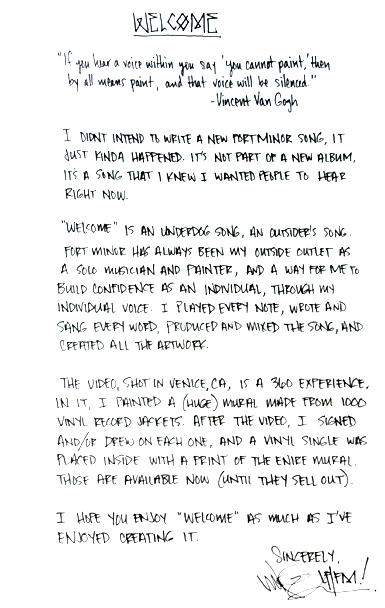 WELCOME
"If you hear a voice within you say 'you cannot paint,' then
by all means paint, and that voice will be silenced."
-Vincent Van Gogh
I DIDNT INTEND TO WRITE A NEW FORT MINOR SONG, IT
JUST KINDA HAPPENED. IT'S NOT PART OF A NEW ALBUM,
IT'S A SONG THAT I KNEW I WANTED PEOPLE TO HEAR
RIGHT NOW.
"WELCOME" IS AN UNDERDOG SONG, AN OUTSIDER'S SONG.
FORT MINOR HAS ALWAYS BEEN MY OUTSIDE OUTLET AS
A SOLO MUSICIAN AND PAINTER, AND A WAY FOR ME TO
BUILD CONFIDENCE AS AN INDIVIDUAL, THROUGH MY
INDIVIDUAL VOICE. I PLAYED EVERY NOTE, WROTE AND
SANG EVERY WORD, PRODUCED AND MIXED THE SONG, AND
CREATED ALL THE ARTWORK.
THE VIDEO, SHOT IN VENICE, CA, IS A 360 EXPERIENCE.
IN IT, I PAINTED A (HUGE) MURAL MADE FROM 1000
VINYL RECORD JACKETS. AFTER THE VIDEO, I SIGNED
AND/OR DREW ON EACH ONE, AND A VINYL SINGLE WAS
PLACED INSIDE WITH A PRINT OF THE ENIRE MURAL.
THOSE ARE AVAILABLE NOW (UNTIL THEY SELL OUT).
I HOPE YOU ENJOY "WELCOME" AS MUCH AS I'VE
ENJOYED CREATING IT.
SINCERELY,